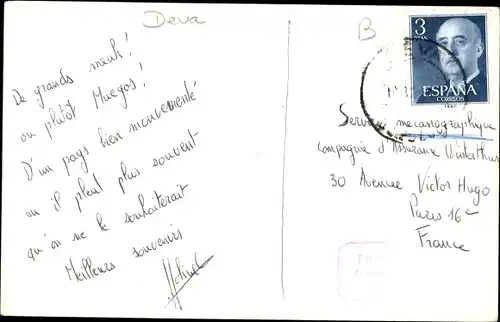 Deva
B
3
PTAS
ESPAÑA
CORREOS
De grands meuh!
ou plutôt Muegos!
D'un pays bien mouvementé
ou il pleut plus souvent
qu'on ne le souhaiterait
Meilleurs souvenirs
Service mecanographique
Compagnie d'Assurance Winterthur
30 Avenue Victor Hugo
Paris 16e
France